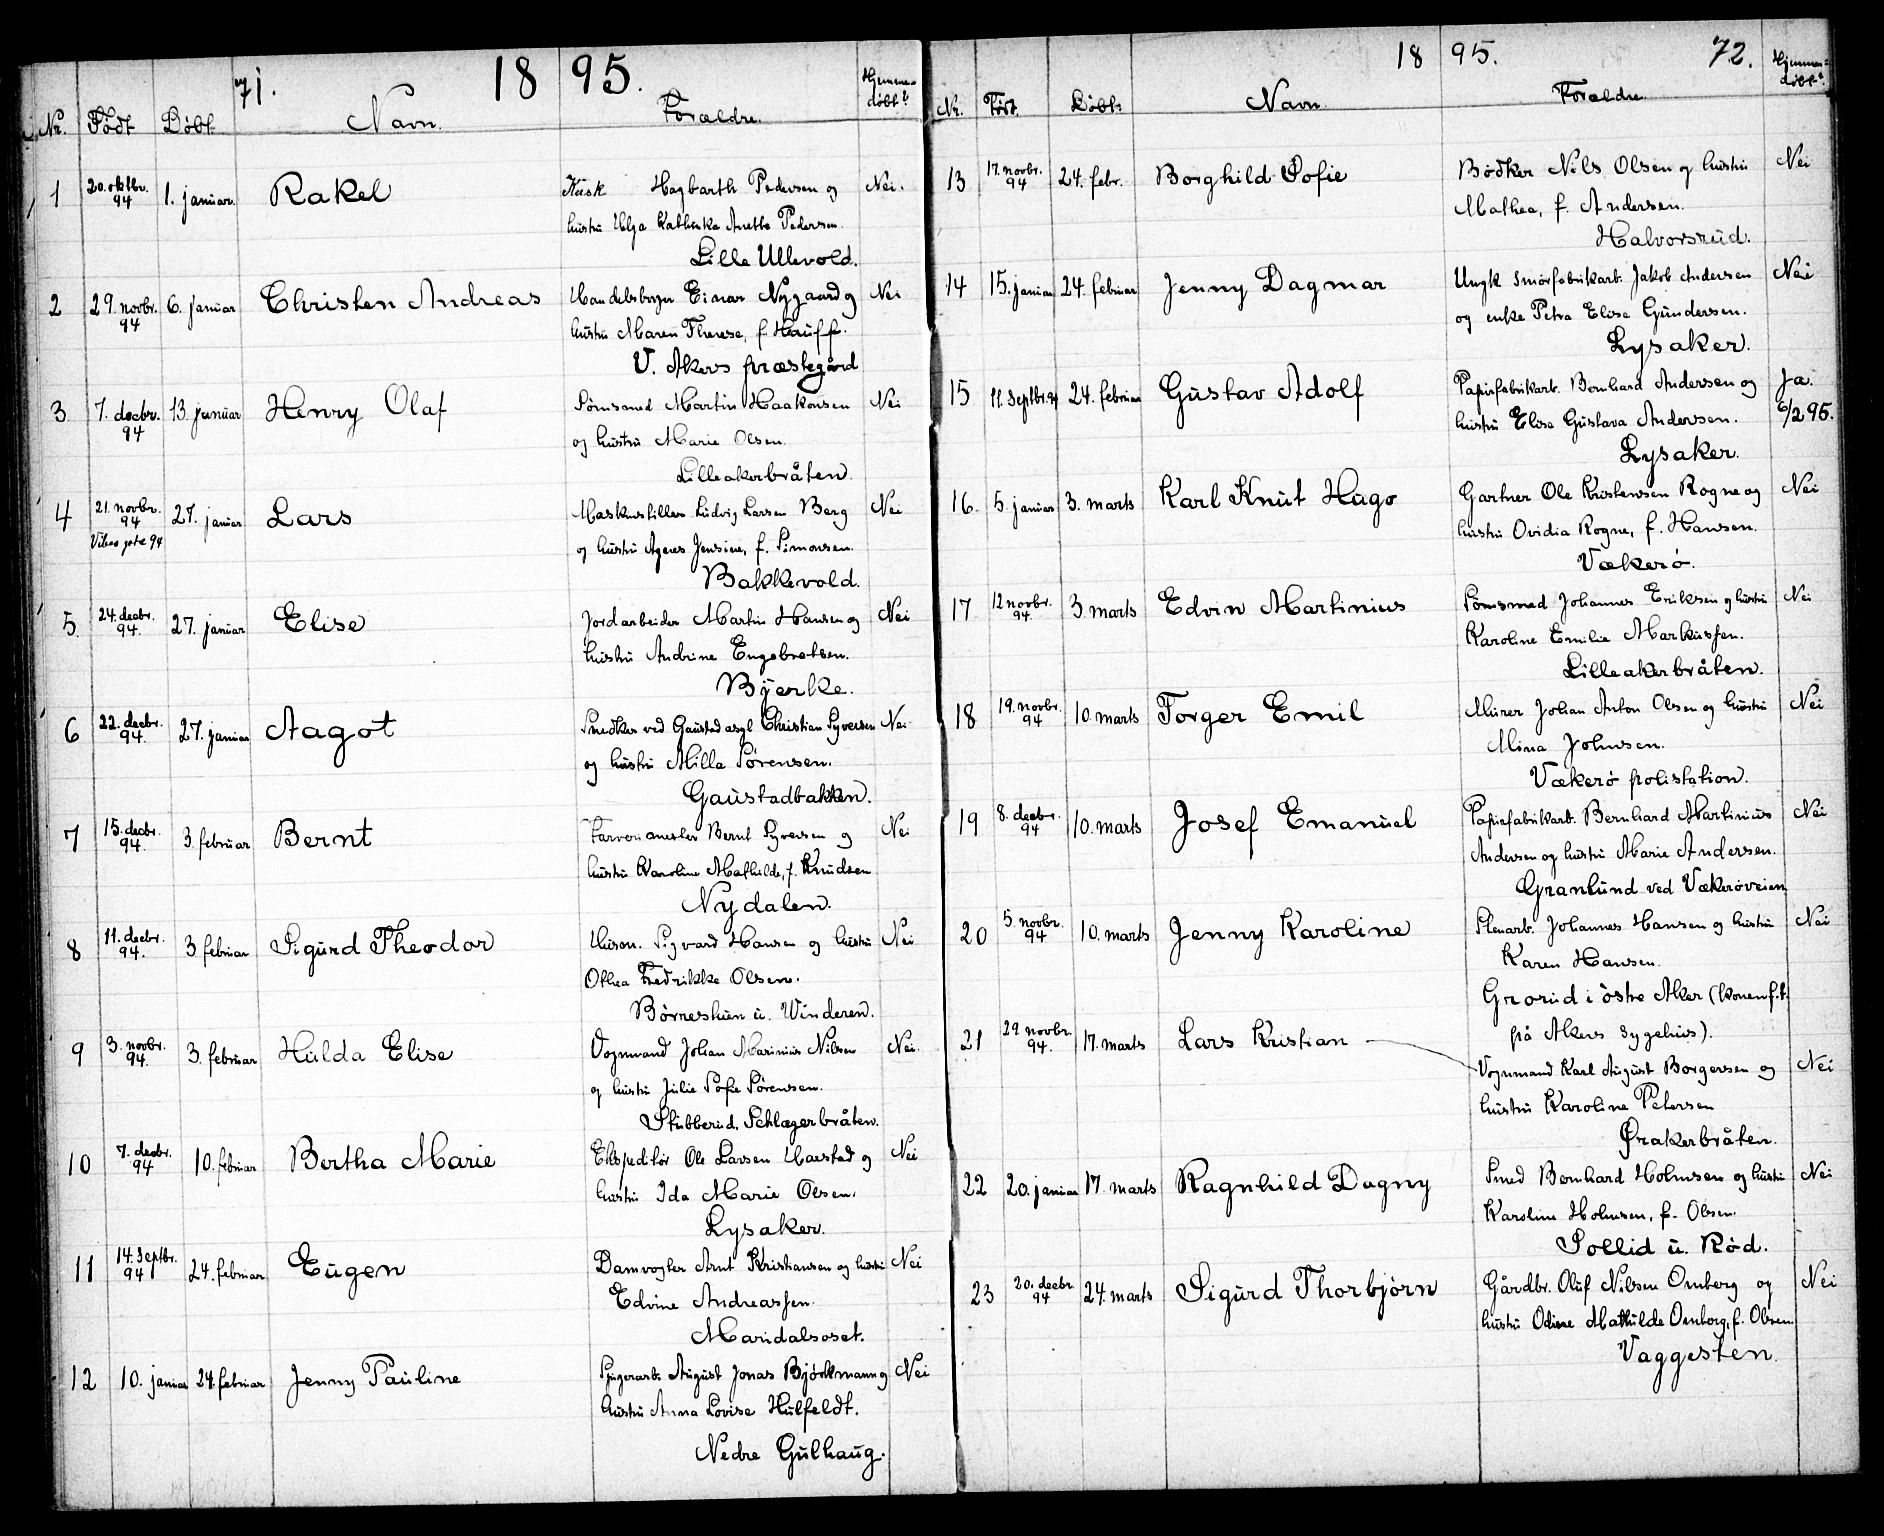 71. 18 95.
Nr. Født Døbt Navn. Forældre. Hjemmedøbt?
1 20. oktbr. 94 1. januar. Rakel Kusk Hagbarth Pedersen og Nei.
hustru Helga Kathinka Anette Pedersen.
Lille Ullevold.
2 29. novbr. 94 6. januar Christen Andreas Handelsbrgr Einar Nygaard og Nei
hustru Maren Therese, f. Hauff.
V. Akers præstegård
3 7. decbr. 94 13. januar Henry Olaf Sømsmed Martin Haakonsen Nei
og hustru Marie Olsen.
Lilleakerbråten.
4 21. novbr. 94 27. januar Lars Ludvig Larsen Berg Nei
og hustru Agnes Jensine, f. Simonsen.
Bakkevold.
5. 24. decbr. 94. 27. januar Elise Jordarbeider Martin Hansen og Nei
hustru Andrine Engebretsen.
Bjerke.
6 22. decbr. 94. 27. januar Aagot Snedker ved Gaustad asyl Christian Syversen Nei
og hustru Milla Sørensen.
Gaustadbakken.
7 15. decbr. 94. 3. februar Bernt Farverimester Bernt Syversen og Nei
hustru Karoline Mathilde, f. Knudsen
Nydalen.
8 11. decbr. 94. 3 februar Sigurd Theodor Husm. Sigvard Hansen og hustru Nei
Othea Fredrikke Olsen.
Børneshuen u. Vinderen.
9 3. novbr. 94. 3. februar Hulda Elise Vognmand Johan Marinius Nilsen Nei.
og hustru Julie Sofie Sørensen.
Stubberud, Schlægerbråten.
10 7. decbr. 94 10. februar Bertha Marie Ekspeditør Ole Larsen Harstad og Nei
hustru Ida Marie Olsen.
Lysaker.
11 14. Septbr. 94 24. februar Eugen Damvogter Arnt Kristiansen og hustru Nei
Edvine Andreassen.
Maridalsoset.
12 10. januar 24. februar Jenny Pauline Spigerarb. August Jonas Bjørkmann og Nei
hustru Anna Lovise Hulfeldt.
Nedre Gulhaug.
18 95. 72.
Nr. Født. Døbt. Navn Forældre Hjemmedøbt?
13 17. novbr. 94 24. febr. Borghild Sofie Bødker Nils Olsen og hustru Nei
Mathea, f. Andersen.
Halvorsrud.
14 15. januar 24. februar Jenny Dagmar Ungk. Smørfabrikarb. Jakob Andersen Nei
og enke Petra Elise Gundersen.
Lysaker.
15 11. Septbr. 94 24. februar Gustav Adolf Papirfabrikarb. Bernhard Andersen og Ja.
hustru Elise Gustava Andersen. 6/2 95.
Lysaker.
16. 5. januar 3. marts Karl Knut Hugo Gartner Ole Kristensen Rogne og Nei
hustru Ovidia Rogne, f. Hansen.
Vækerø.
17 12 novbr. 94 3. marts Edvin Martinius Sømsmed Johannes Eriksen og hustru Nei
Karoline Emilie Markussen.
Lilleakerbråten.
18 19. novbr. 94 10. marts Torger Emil Murer Johan Anton Olsen og hustru Nei
Mina Johnsen.
Vækerø polistation.
19 8. decbr. 94 10. marts Josef Emanuel Papirfabrikarb. Bernhard Martinius Nei
Andersen og hustru Marie Andersen.
Granlund ved Vækerøveien
20 5. novbr. 94 10. marts Jenny Karoline Stenarb. Johannes Hansen og hustru Nei
Karen Hansen.
Grorud i østre Aker (konen f. t.
på Akers Sygehus).
21 29 novbr. 94. 17. marts Lars Kristian Vognmand Karl August Borgersen og Nei
hustru Karoline Petersen
Ørakerbråten.
22 20. januar 17. marts Ragnhild Dagny Smed Bernhard Holmsen og hustru Nei
Karoline Holmsen, f. Olsen.
Sollid u. Rød.
23 20. decbr. 94 24. marts Sigurd Thorbjørn Gårdbr. Oluf Nilsen Omberg og Nei
hustru Odine Mathilde Omberg, f. Olsen.
Vaggesten.